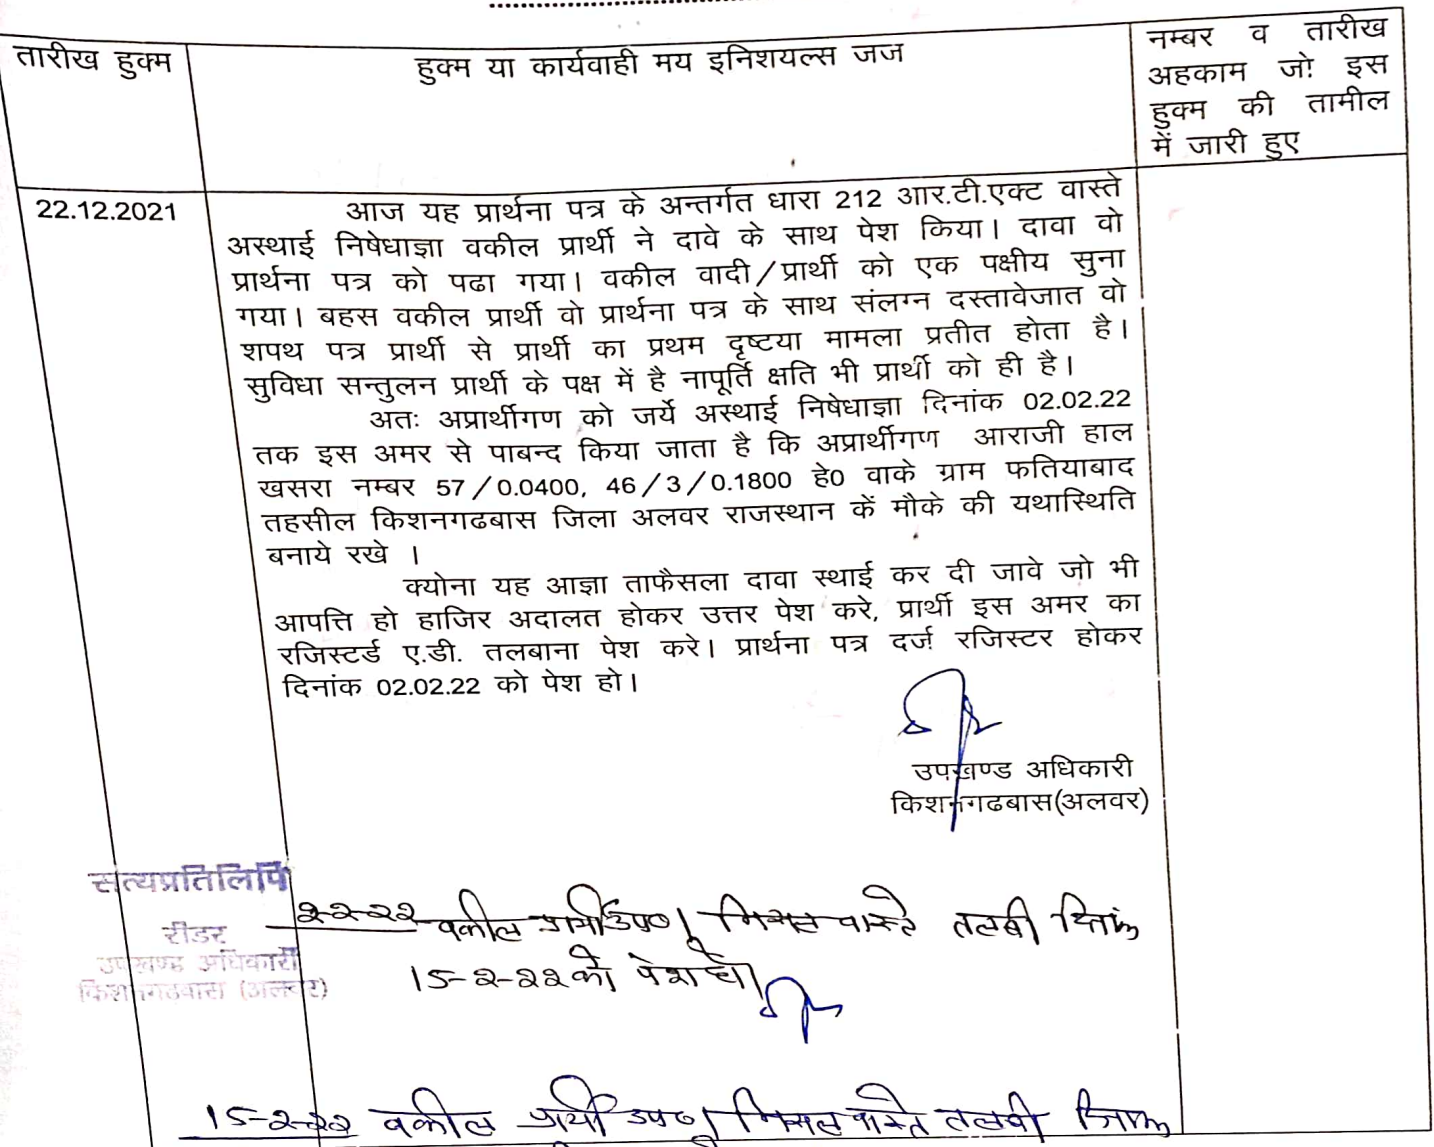 तारीख हुक्म
हुक्म या कार्यवाही मय इनिशयल्स जज
नम्बर व तारीख
अहकाम जो इस
हुक्म की तामील
में जारी हुए
22.12.2021
आज यह प्रार्थना पत्र के अन्तर्गत धारा 212 आर.टी.एक्ट वास्ते
अस्थाई निषेधाज्ञा वकील प्रार्थी ने दावे के साथ पेश किया। दावा वो
प्रार्थना पत्र को पढा गया। वकील वादी/प्रार्थी को एक पक्षीय सुना
गया। बहस वकील प्रार्थी वो प्रार्थना पत्र के साथ संलग्न दस्तावेजात वो
शपथ पत्र प्रार्थी से प्रार्थी का प्रथम दृष्टया मामला प्रतीत होता है।
सुविधा सन्तुलन प्रार्थी के पक्ष में है नापूर्ति क्षति भी प्रार्थी को ही है।
अतः अप्रार्थीगण को जर्ये अस्थाई निषेधाज्ञा दिनांक 02.02.22
तक इस अमर से पाबन्द किया जाता है कि अप्रार्थीगण आराजी हाल
खसरा नम्बर 57/0.0400, 46/3/0.1800 हे0 वाके ग्राम फतियाबाद
तहसील किशनगढबास जिला अलवर राजस्थान कें मौके की यथास्थिति
बनाये रखे ।
क्योना यह आज्ञा ताफैसला दावा स्थाई कर दी जावे जो भी
आपत्ति हो हाजिर अदालत होकर उत्तर पेश करे, प्रार्थी इस अमर का
रजिस्टर्ड ए.डी. तलबाना पेश करे। प्रार्थना पत्र दर्ज रजिस्टर होकर
दिनांक 02.02.22 को पेश हो।
उपखण्ड अधिकारी
किशनगढबास(अलवर)
सत्यप्रतिलिपि
रीडर
उपखण्ड अधिकारी
किशनगढबास (अलवर)
2-2-22 वकील प्रार्थी उप0। मिसल वास्ते तलबी दिनांक
15-2-22 को पेश हो।
15-2-22 वकील प्रार्थी उप0। मिसल वास्ते तलबी दिनांक